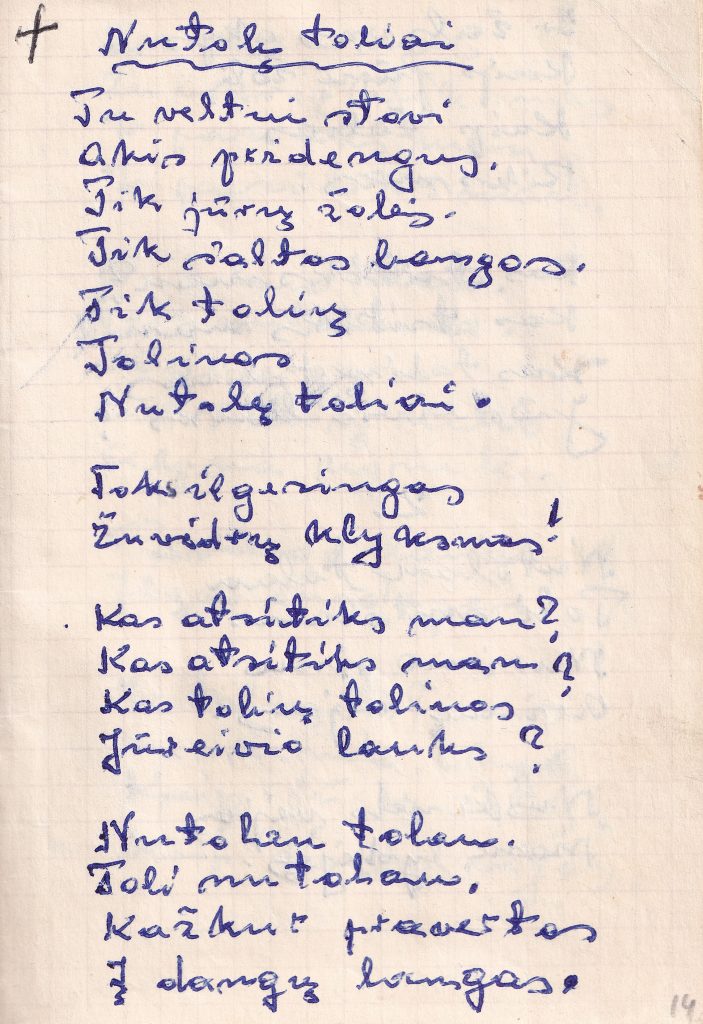 Nutolę toliai
Tu veltui stovi
Akis pridengus.
Tik jūrų žolės.
Tik šaltos bangos.
Tik tolių
Tolinas
Nutolę toliai.
Toks ilgesingas
Žuvėdrų klyksmas!
Kas atsitiks man?
Kas atsitiks man?
Kas tolių tolinas
Jūreivio lauks?
Nutolau tolau.
Toli nutolau.
Kažkur pravertas
Į dangų langas.
14